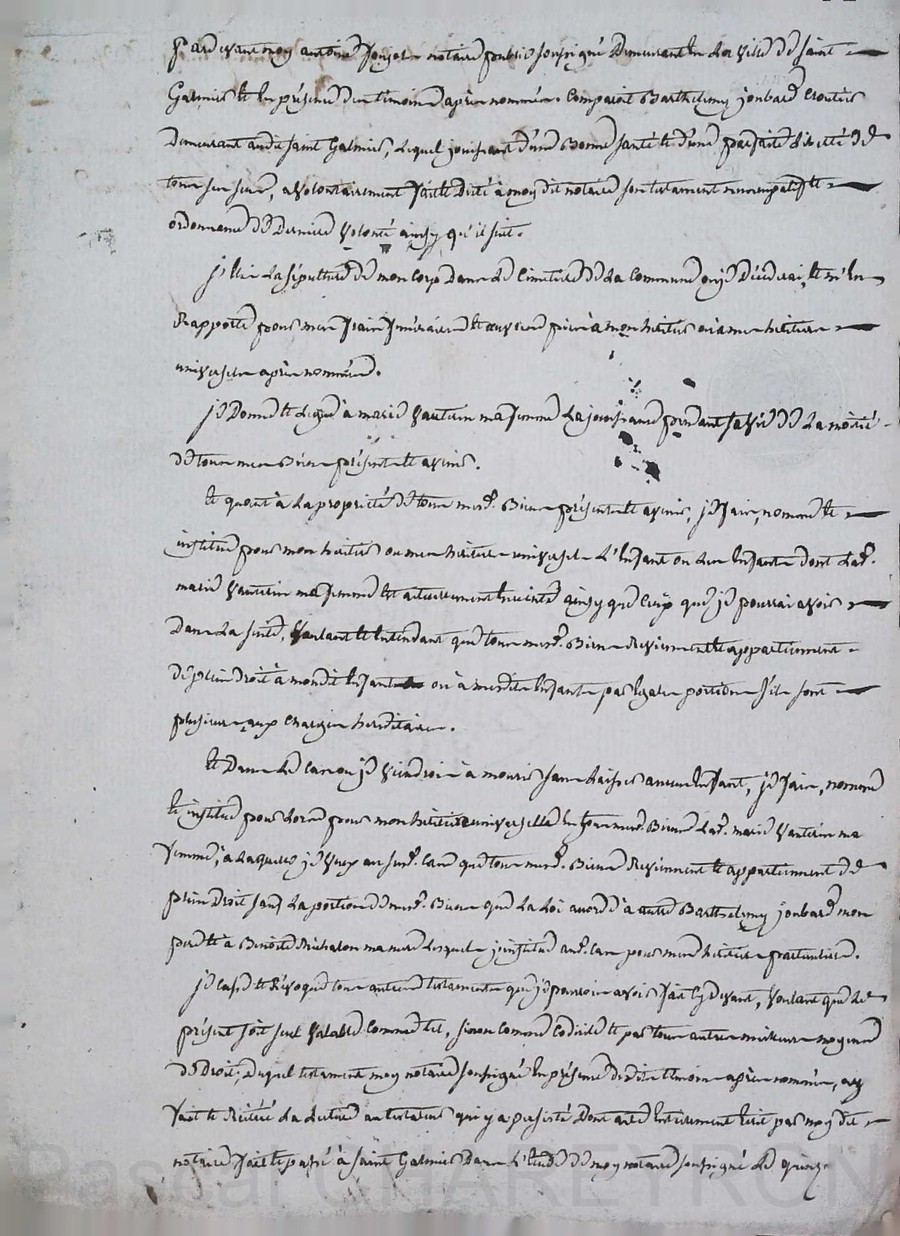 Pardevant moy antoine notaire public soussigné Demeurant En La ville de saint
Galmier Et En présence Des témoins après nommés. Comparoit Barthelemy jonbard
Demeurant audit saint Galmier, Lequel jouissant d'une Bonne santé Et d'une parfaite Liberté de
tous ses sens, a volontairement fait Et Dicté à moy dit notaire son testament nuncupatif Et
ordonnance de Derniere volonté ainsy qu'il suit.
La sépulture de mon corps Dans Le Cimetiere de La Commune où je Décéderai, Et m'En
Rapporte pour mes frais funéraires Et œuvres pies à mon héritier ou à mes héritiers
universels après nommés.
je Donne Et Legue à marie vauterin ma femme La jouissance pendant sa vie de La moitié
de tous mes Biens présents Et avenir.
Et quant à La propriété de tous mesd. Biens présents Et avenir, je fais, nomme Et
institue pour mon héritier ou mes héritiers universels L'Enfant ou Les Enfants dont Lad.
marie vauterin ma femme Est actuellement Enceinte ainsy que Ceux que je pourrai avoir
Dans La suite, voulant Et Entendant que tous mesd. Biens Reviennent Et appartiennent
de plein Droit à mondit Enfant ou à mesdits Enfants par Egales portions s'ils sont
plusieurs aux Charges héréditaires.
Et Dans Le Cas où je viendrois à mourir sans Laisser aucun Enfant, je fais, nomme
Et institue pour Lors pour mon héritiere universelle En tous mesd. Biens Lad. marie vauterin ma
femme, à Laquelle je veux aud. Cas que tous mesd. Biens Reviennent Et appartiennent de
plein Droit sauf La portion de mesd. Biens que La Loi accorde à autre Barthelemy jonbard mon
pere Et à Benoite ma mere Lesquels j'institue aud. Cas pour mes héritiers particuliers.
je Casse Et Révoque tous autres testaments que je pourrois avoir fait Cy devant, voulant que Le
présent soit seul valable Comme tel, sinon Comme Codicile Et par tous autres meilleurs moyens
de Droit, Duquel testament moy notaire soussigné En présence Desdits témoins après nommés, ay
fait Et Réitéré La Lecture au testateur qui y a persisté Dont acte Entierement Ecrit par moy dit
notaire fait Et passé à saint Galmier Dans L'Etude de moy notaire soussigné Le quinze
Pascal CHAREYRON